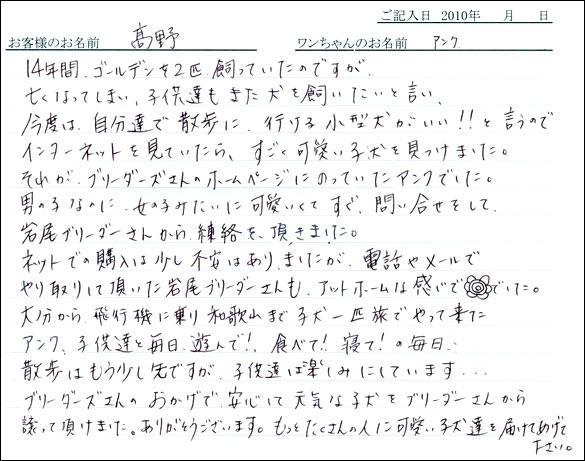 ご記入日 2010年 月 日
お客様のお名前 髙野 ワンちゃんのお名前 アンク
14年間、ゴールデンを2匹、飼っていたのですが、
亡くなってしまい、子供達もまた犬を飼いたいと言い、
今度は、自分達で散歩に、行ける小型犬がいい!!と言うので
インターネットを見ていたら、すごく可愛い子犬を見つけました。
それが、ブリーダーズさんのホームページにのっていたアンクでした。
男の子なのに、女の子みたいに可愛いくてすぐ、問い合せをして、
岩尾ブリーダーさんから、練絡を、頂きました。
ネットでの購入は少し不安はありましたが、電話やメールで
やり取りして頂いた岩尾ブリーダーさんも、アットホームな感じで でした。
大分から、飛行機に乗り和歌山まで子犬一匹旅でやって来た
アンク、子供達と毎日、遊んで!、食べて!寝て!の毎日、
散歩はもう少し先ですが、子供達は楽しみにしています...
ブリーダーズさんの おかげで、安心して元気な子犬をブリーダーさんから
譲って頂けました。ありがとうございます。もっとたくさんの人に可愛い子犬達を届けてあげて
下さい。